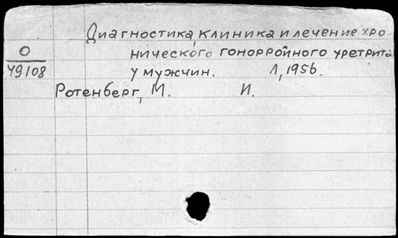 Диагностика, клиника и лечение хро
нического гоноррöйного уретрита
у мужчин. Л, 1956.
О
49108
Ротенберг, М. И.